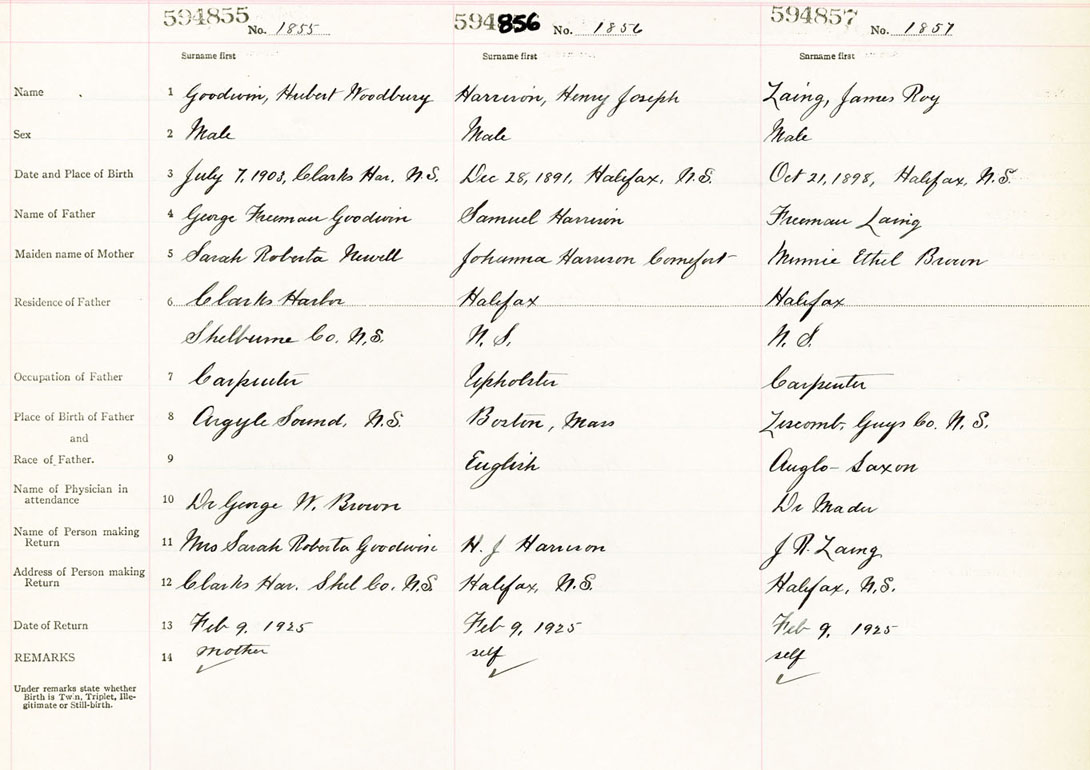 594855 No. 1855 594856 No. 1856 594857 No. 1857
Surname first Surname first Surname first
Name 1 Goodwin, Hubert Woodbury Harrison, Henry Joseph Laing, James Roy
Sex 2 Male Male Male
Date and Place of Birth 3 July 7, 1903, Clarks Har. N.S. Dec 28, 1891, Halifax, N.S. Oct 21, 1898, Halifax, N.S.
Name of Father 4 George Freeman Goodwin Samuel Harrison Freeman Laing
Maiden name of Mother 5 Sarah Roberta Newell Johanna Harrison Comefort Minnie Ethel Brown
Residence of Father 6 Clarks Harbor Halifax Halifax
Shelburne Co. N.S. N.S. N.S.
Occupation of Father 7 Carpenter Upholster Carpenter
Place of Birth of Father 8 Argyle Sound, N.S. Boston, Mass Liscomb, Guys Co. N.S.
and
Race of Father. 9 English Anglo-Saxon
Name of Physician in
attendance 10 Dr George W. Brown Dr Mader
Name of Person making
Return 11 Mrs Sarah Roberta Goodwin H. J Harrison J R. Laing
Address of Person making
Return 12 Clarks Har. Shel Co. N.S. Halifax, N.S. Halifax, N.S.
Date of Return 13 Feb 9, 1925 Feb 9, 1925 Feb 9, 1925
REMARKS 14 mother self self
Under remarks state whether
Birth is Twin, Triplet, Ille-
gitimate or Still-birth.